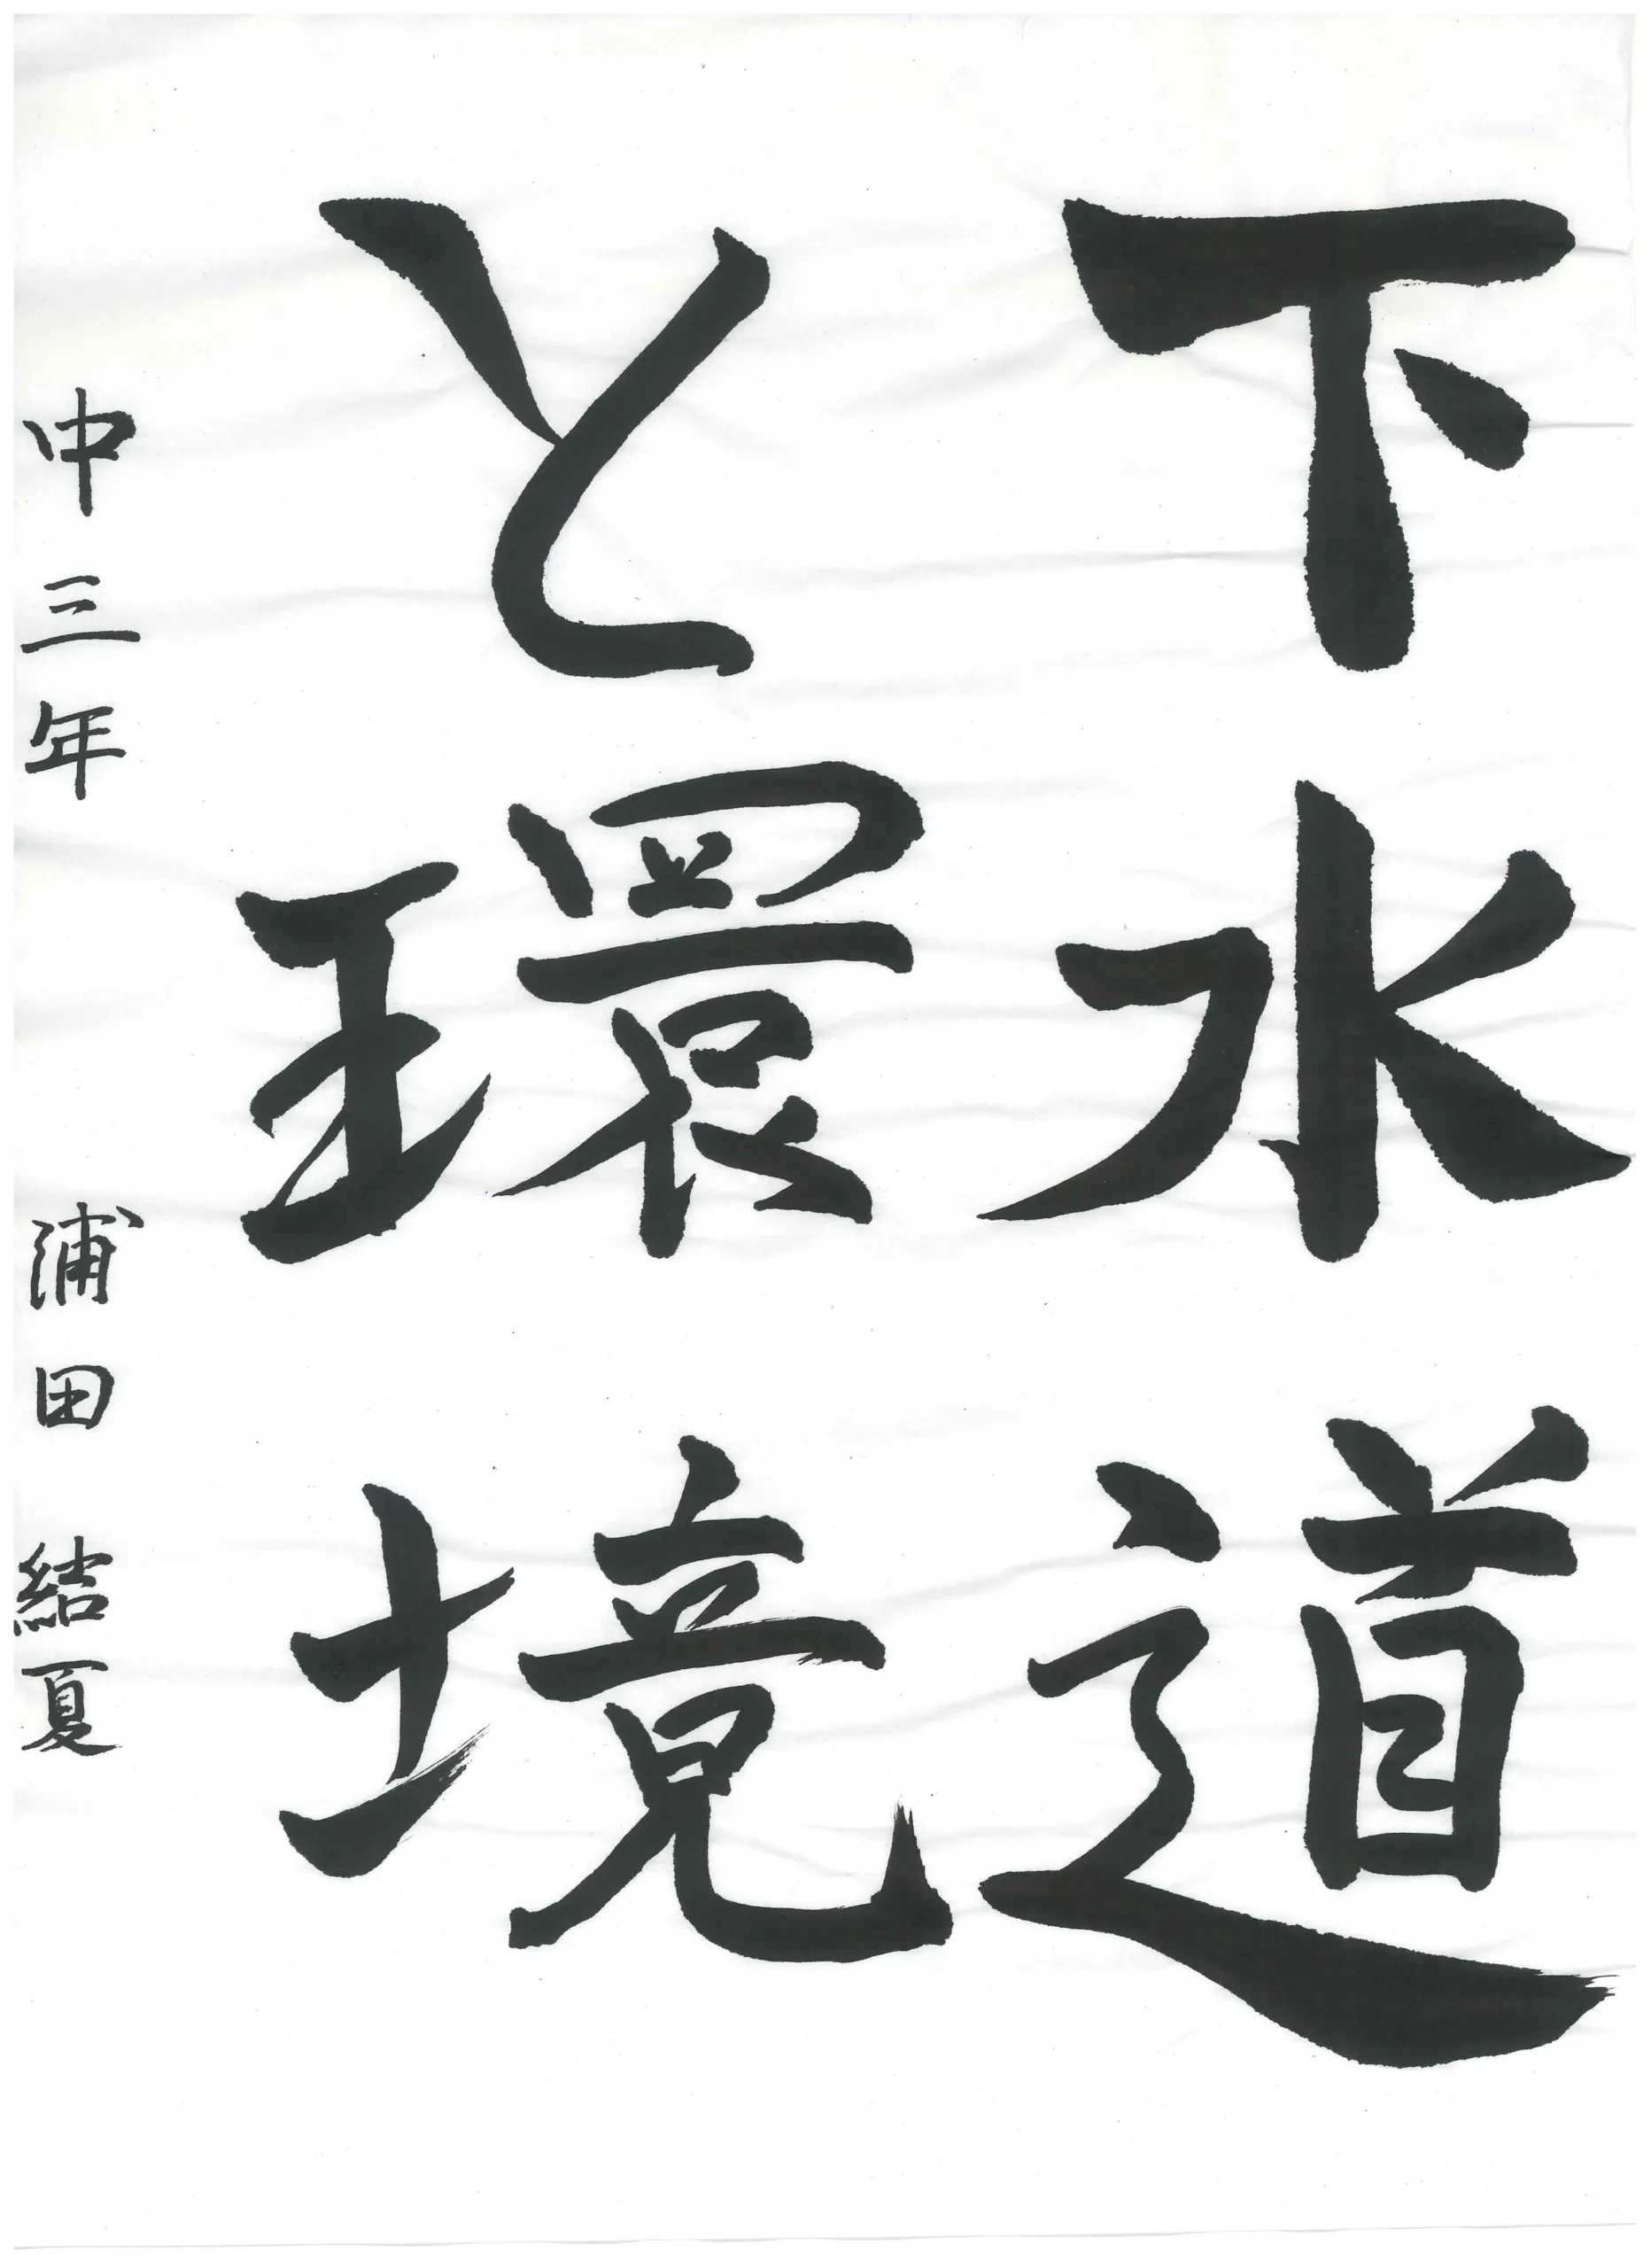 下水道
と環境
中三年 浦田 結夏